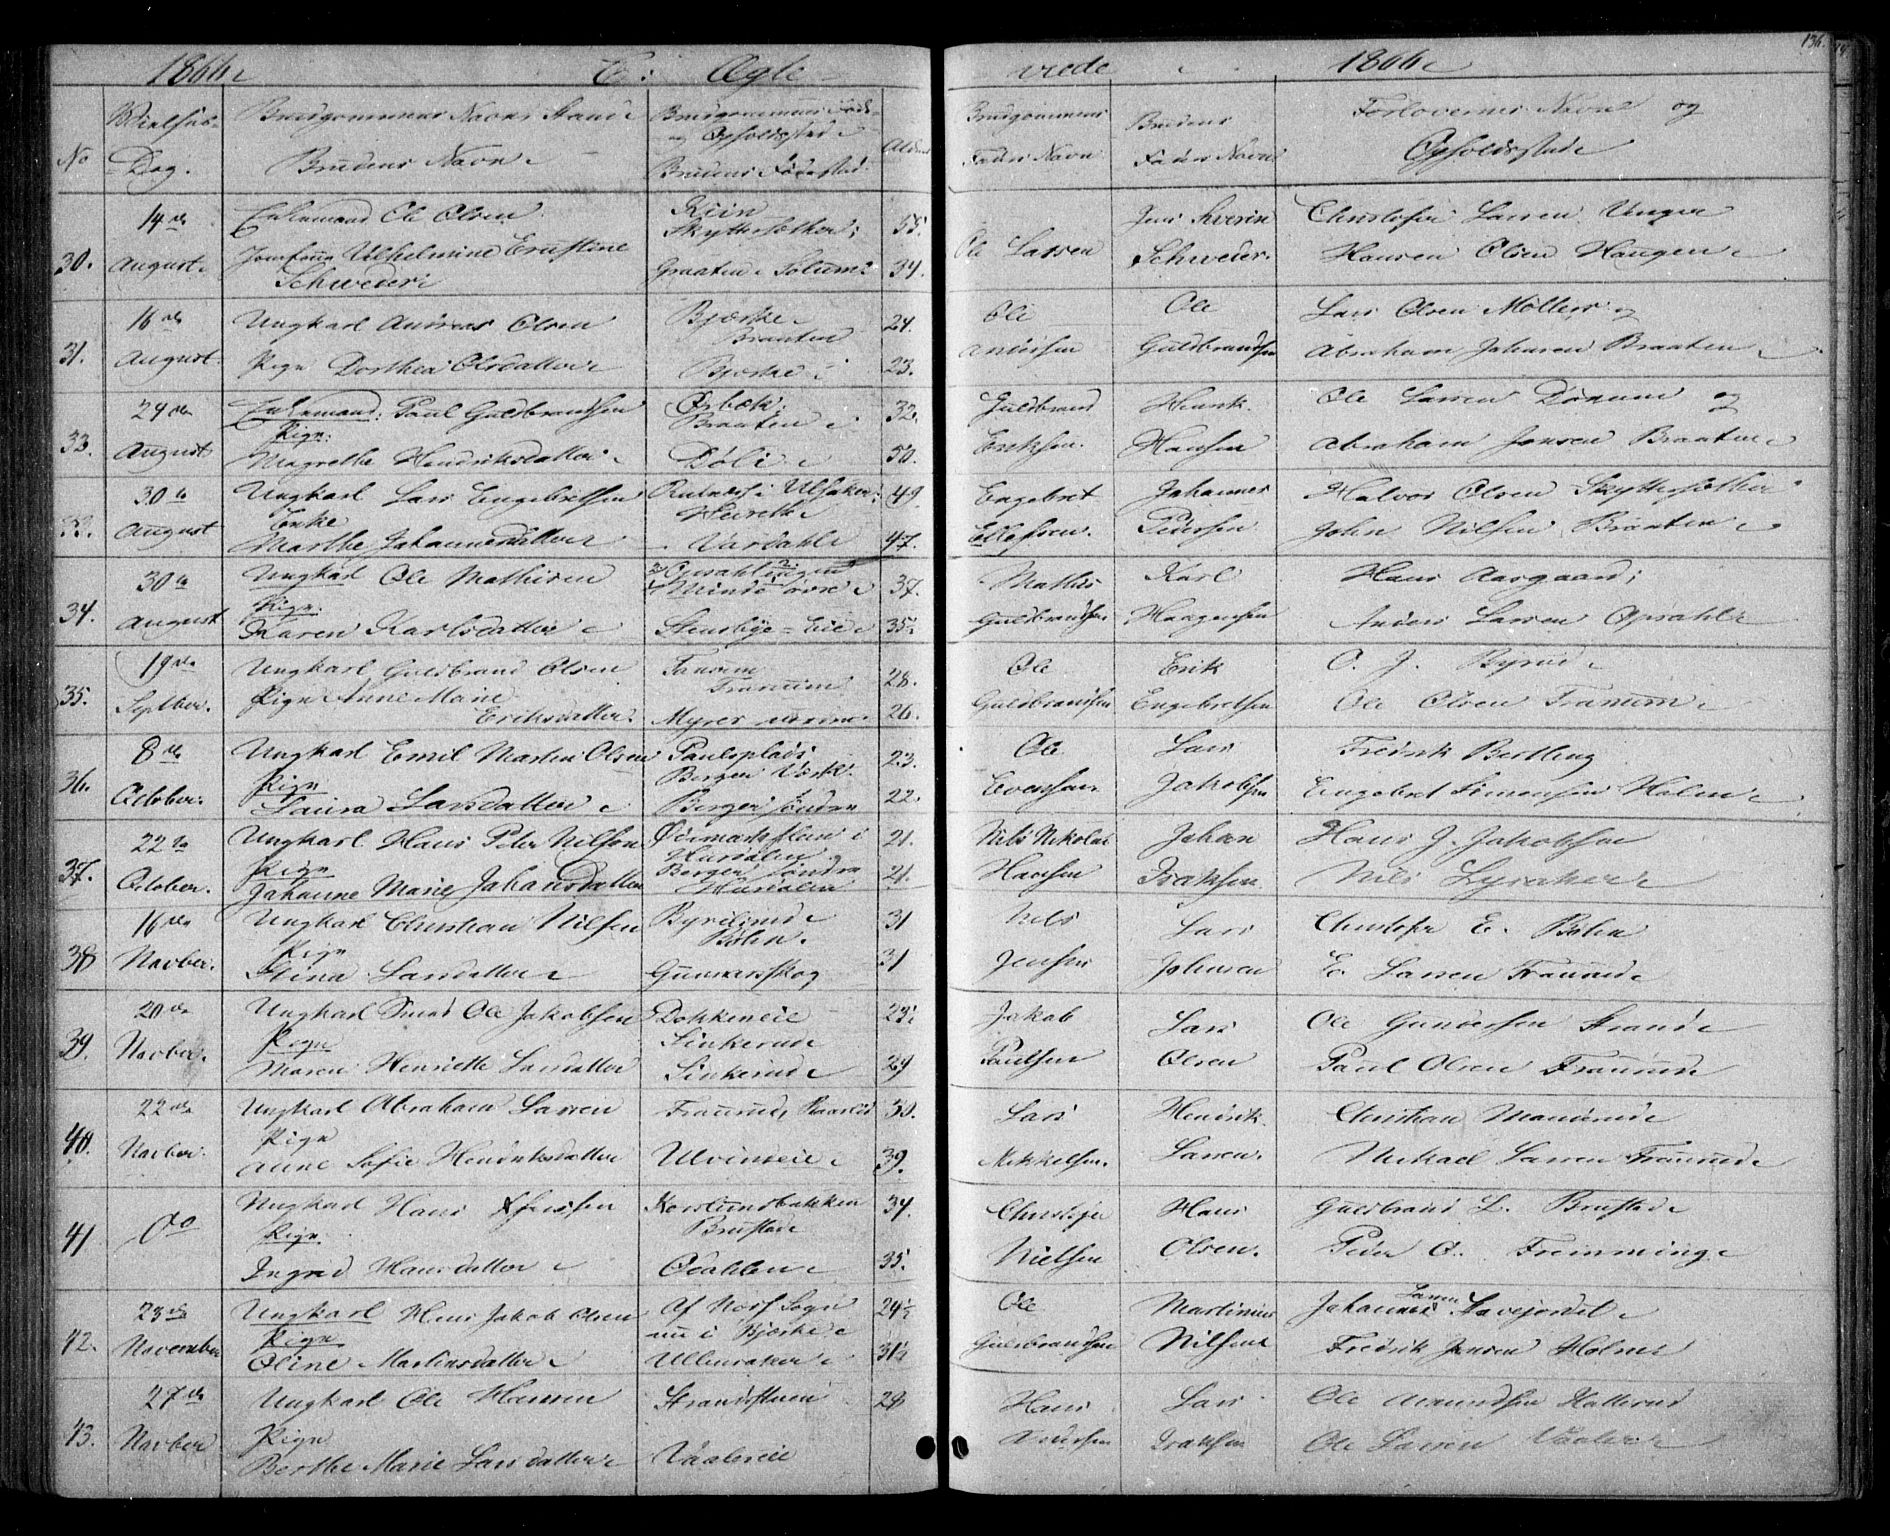 136.
1866. C: Ægte- viede 1866.
No
Vielses-Dag.
Brudgommens Navn Stand
Brudens Navn
Brudgommens Føde- og Opholdssted
Brudens Fødested
Alder
Brudgommens Faders Navn
Brudens Faders Navn
Forlovernes Navne og Opholdssted
30.
14de August
Enkemand Ole Olsen
Jomfrue Vilhelmine Ernstine Schweder
Skyttesæther;
Graaten Solum
55.
34.
Ole Larsen
Jens Severin Schweder.
Christofer Larsen Unger
Hansen Olsen Haugen
31.
16de August.
Ungkarl Andreas Olsen
Pige Dorthea Olsdatter
Bjerke Braaten
Bjerke
24.
23.
Ole Andersen
Ole Guldbrandsen
Lars Olsen Møller og
Abraham Johnsen Braaten
33.
24de August
Enkemand: Paul Guldbrandsen
Pige:
Magrethe Hendriksdatter
Ørbæk.
Braaten
Døli
32.
50.
Guldbrand Eriksen.
Henrik Hansen
Ole Larsen Dønnum og
Abraham Jensen Braaten
33.
30te August
Ungkarl Lars Engebretsen
Enke
Marthe Johannesdatter
Ulsaker;
Vardahl
49
47.
Engebret Ellefsen.
Johannes Pedersen
Halvor Olsen Skyttesæther
John Nilsen Braaten
34.
30te August
Ungkarl Ole Mathisen
Pige:
Karen Karlsdatter
Opsahl
Minde øvre
Stensbye-Eie
37.
35
Mathis Guldbrandsen
Karl Haagensen
Hans Aasgaard;
Anders Larsen Opsahl
35.
19de Septber.
Ungkarl Guldbrand Olsen
Pige Anne Marie Eriksdatter.
Tranum
Myrer
28.
26.
Ole Guldbrandsen
Erik Engebretsen
O. J. Byrud
Ole Olsen Tranum
36.
8de October.
Ungkarl Emil Martin Olsen
Pige
Laura Larsdatter
Paulsplads
Bergen Værk.
Bergen Søndre
23.
22.
Ole Evensen
Lars Jakobsen
Fredrik Bertling
Engebret Simensen Holm
37.
22de October.
Ungkarl Hans Peter Nilsen
Pige
Johanne Marie Johansdatter
Hurdalen
Bergen Søndre Hurdalen
21.
21.
Nils Nikolai Hansen
Johan Isaksen
Hans J. Jakobsen
Nils Lysaker
38
16de Novber.
Ungkarl Christian Nilsen
Pige
Stina Larsdatter
Byrilund
Bøhn.
Gunnarsskog
31
31
Nils Jensen
Lars Johnsen
Christofer E. Bøhn
E. Larsen Traunud
39.
20de Novber.
Ungkarl Smed Ole Jakobsen
Pige
Maren Henriette Larsdatter
Dokkeneie
Sinkerud
Sinkerud
29
Jakob Paulsen
Lars Olsen
Ole Gundersen Strand
Paul Olsen Traunud
40.
22de Novber.
Ungkarl Abraham Larsen
Pige
Anne Sofie Hendriksdatter
Ulvineie
30.
39.
Lars Mikkelsen.
Henrik Larsen.
Christian Manderud
Mikael Larsen Traunud
41
Do
Ungkarl Hans
Pige.
Ingrid Hansdatter
Korslundbakken
Brustad
Odahlen
34.
35.
Christofer Nielsen
Hans Olsen.
Guldbrand L. Brustad
Peder O. Fremming
42.
23de November
Ungkarl Hans Jakob Olsen
Pige
Oline Martinsdatter
Af Nord Sogn nu i Bjerke
Ullensaker
24½
31½
Ole Guldbrandsen
Martinus Nilsen
Johannes Larsen Havejordet
Fredrik Jensen Holm
43.
27de Novber
Ungkarl Ole Hansen
Pige
Berthe Marie Larsdatter
Strandstuen
Vaalereie
29
Hans Andersen
Lars Isaksen
Ole Amundsen Hatterud
Ole Larsen Vaaler